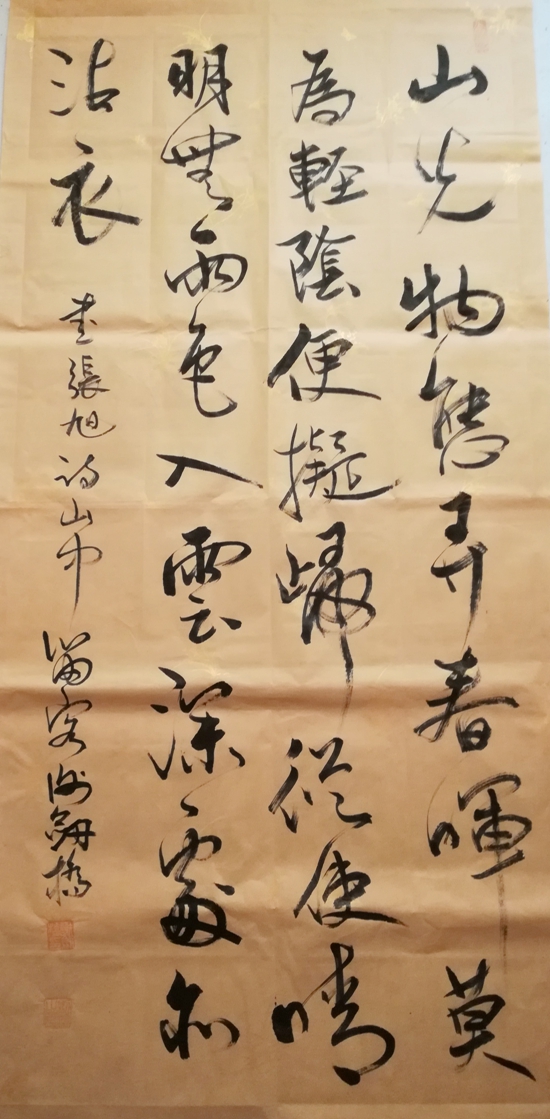 山光物態弄春暉莫
為輕陰便擬歸從使晴
明無雨色入雲深處亦
沾衣
書張旭詩山中留客橋